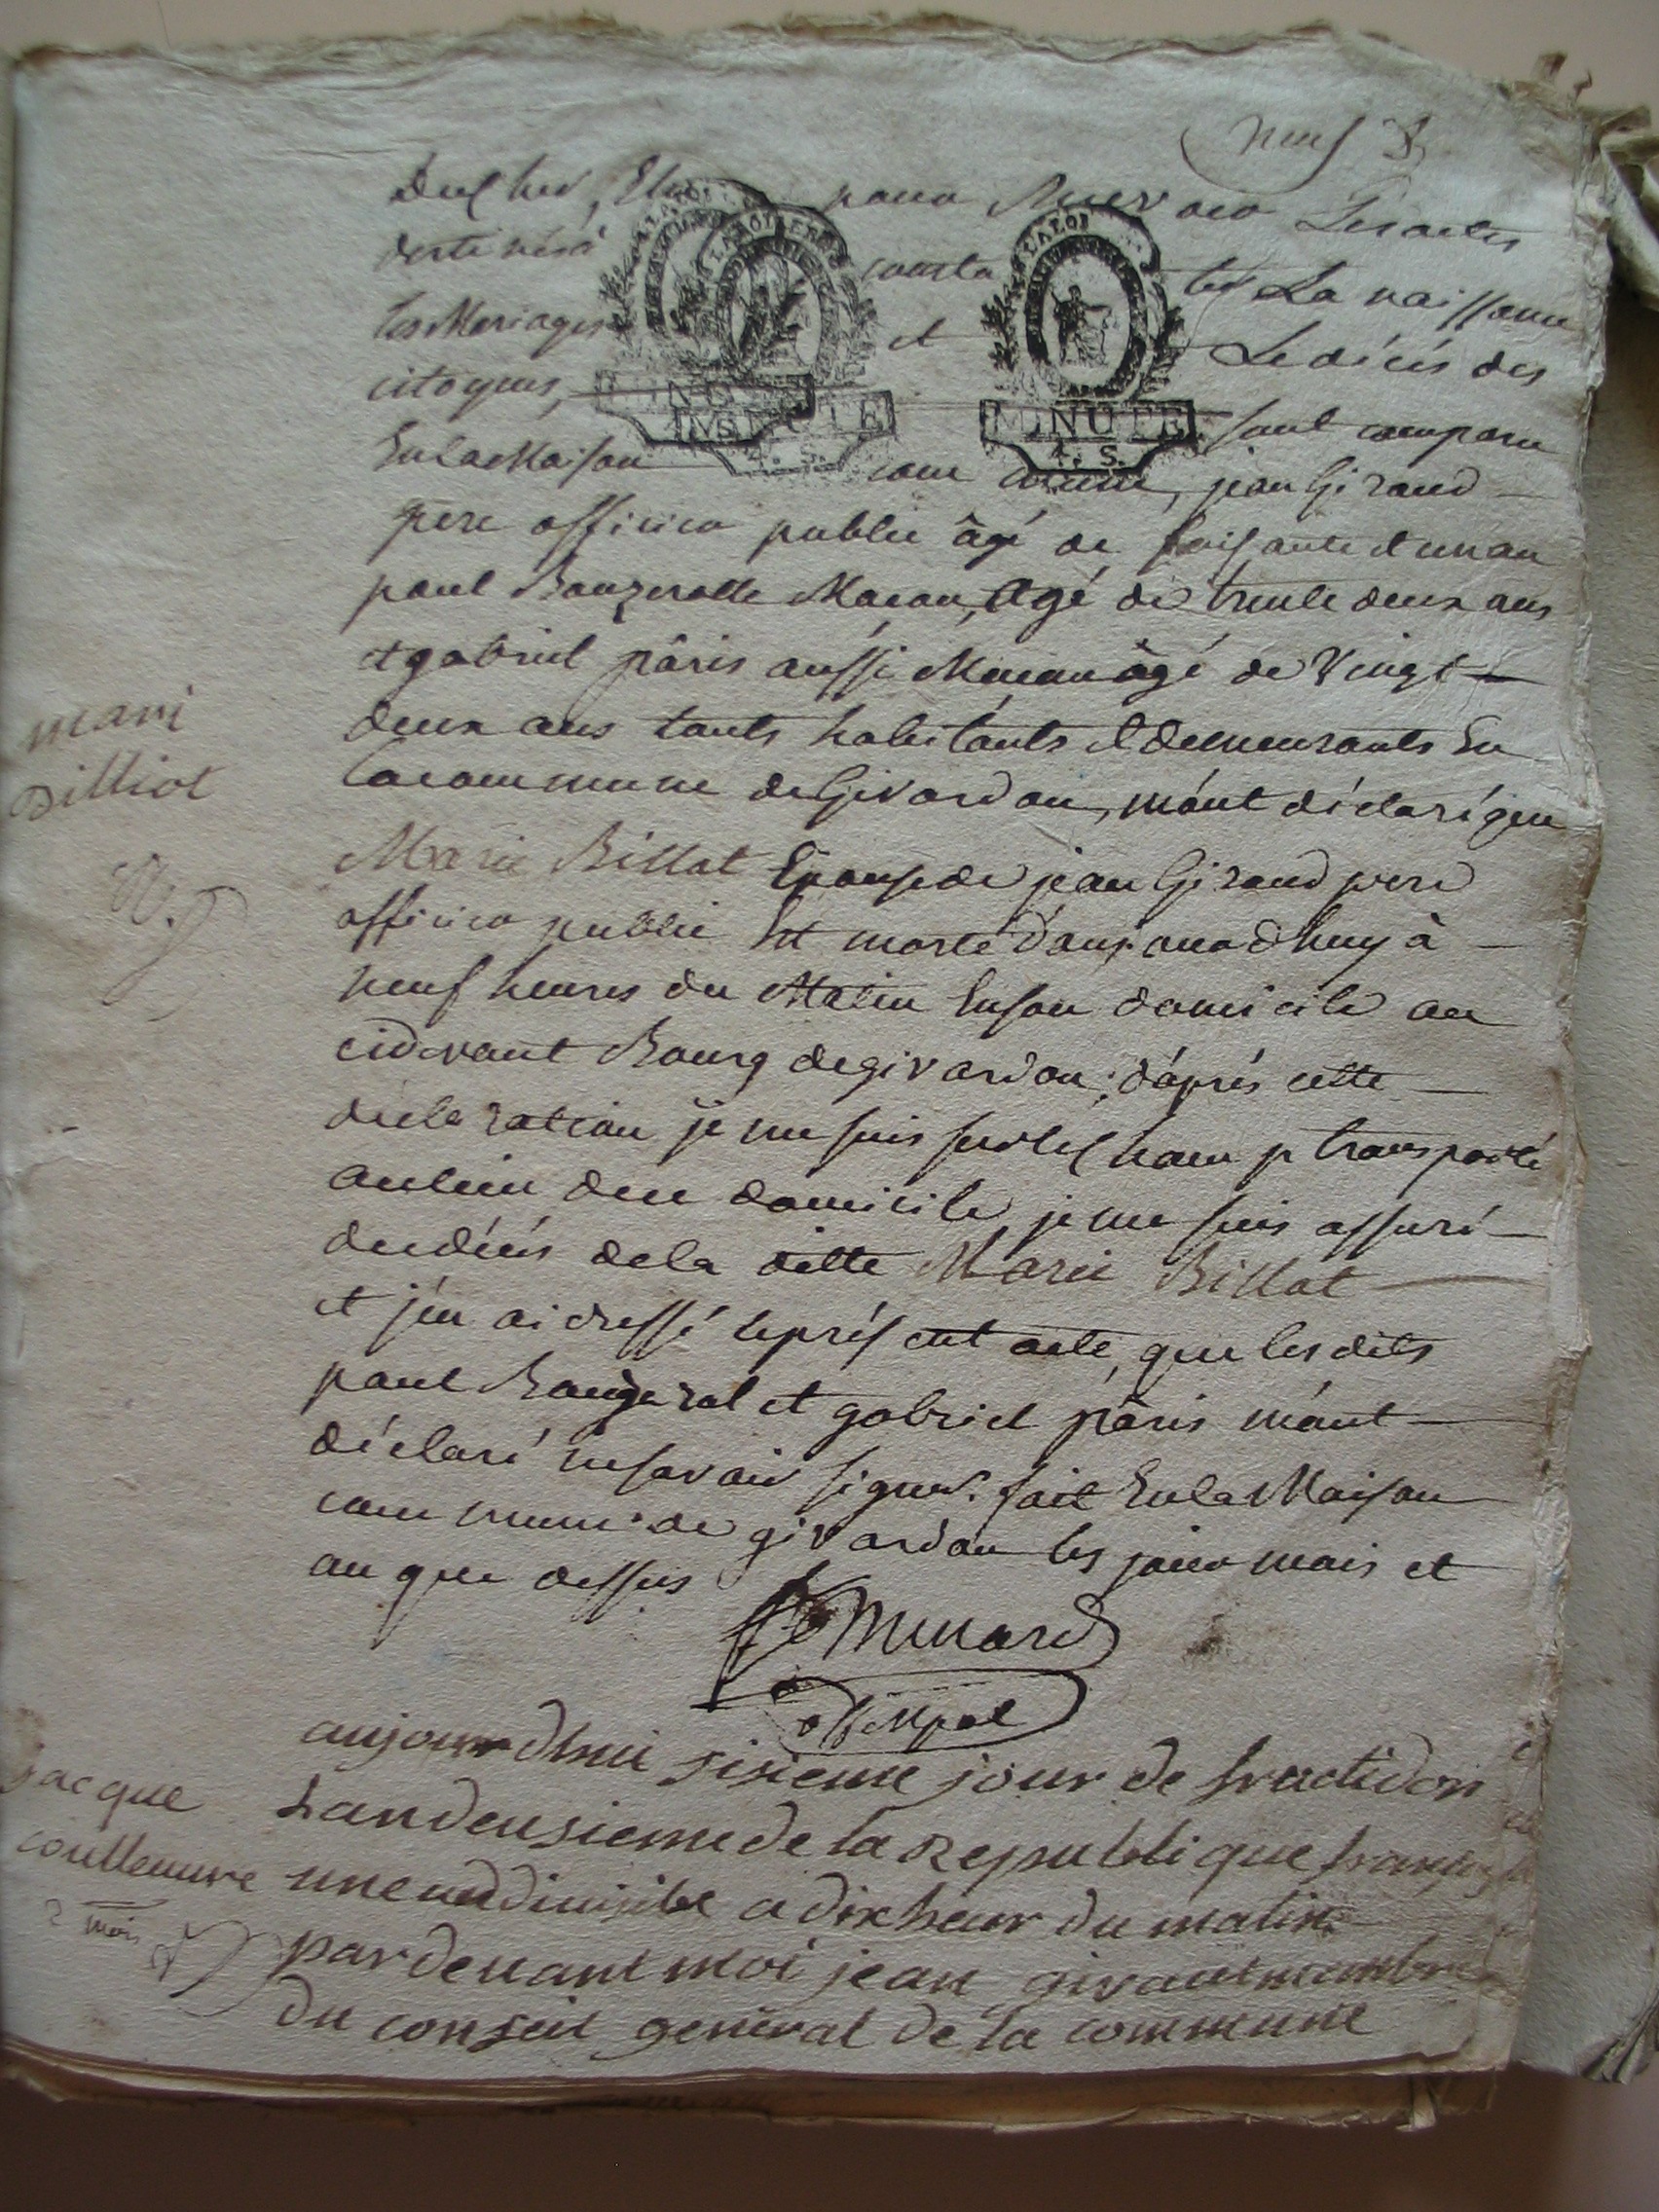 neuf
du Cher, Elu pour Recevoir Les actes
destinés à constater La naissance
les Mariages et Le décés des
citoyens, sont comparu
En la Maison commune, jean Giraud
pere officier public âgé de soisante et un an
paul Bauzerolle Macon, Agé de trente deux ans
et gabriel pâris aussi Macon âgé de Vingt
deux ans touts habitants et demeurants En
la commune de Givardon, m'ont déclaré que
mari
Billiot
Marie Billot Epouse de jean Giraud pere
officier public Est morte d'aujourdhuy à
neuf heures du Matin En son domicile au
cidevant Bourg de givardon; d'aprés cette
déclaration je me suis sur le champ transporté
au lieu du domicile, je me suis assuré
du décés de la ditte Marie Billot
et j'en ai dressé le présent acte, que les dits
paul Bauzeral et gabriel pâris m'ont
déclaré ne savoir signer. fait En la Maison
commune de givardon les jour mois et
an que dessus
Menard
off. mpal
jacque
coullemure
2 mois
aujourdhui sisieme jour de fructidor
Lan deusieme de la Republique francaise
une indiuisible a dix heur du matin
pardeuant moi jean giraut membre
du conseil general de la commune
LA LOI
MINUTE
4. S.
MINUTE
4. S.